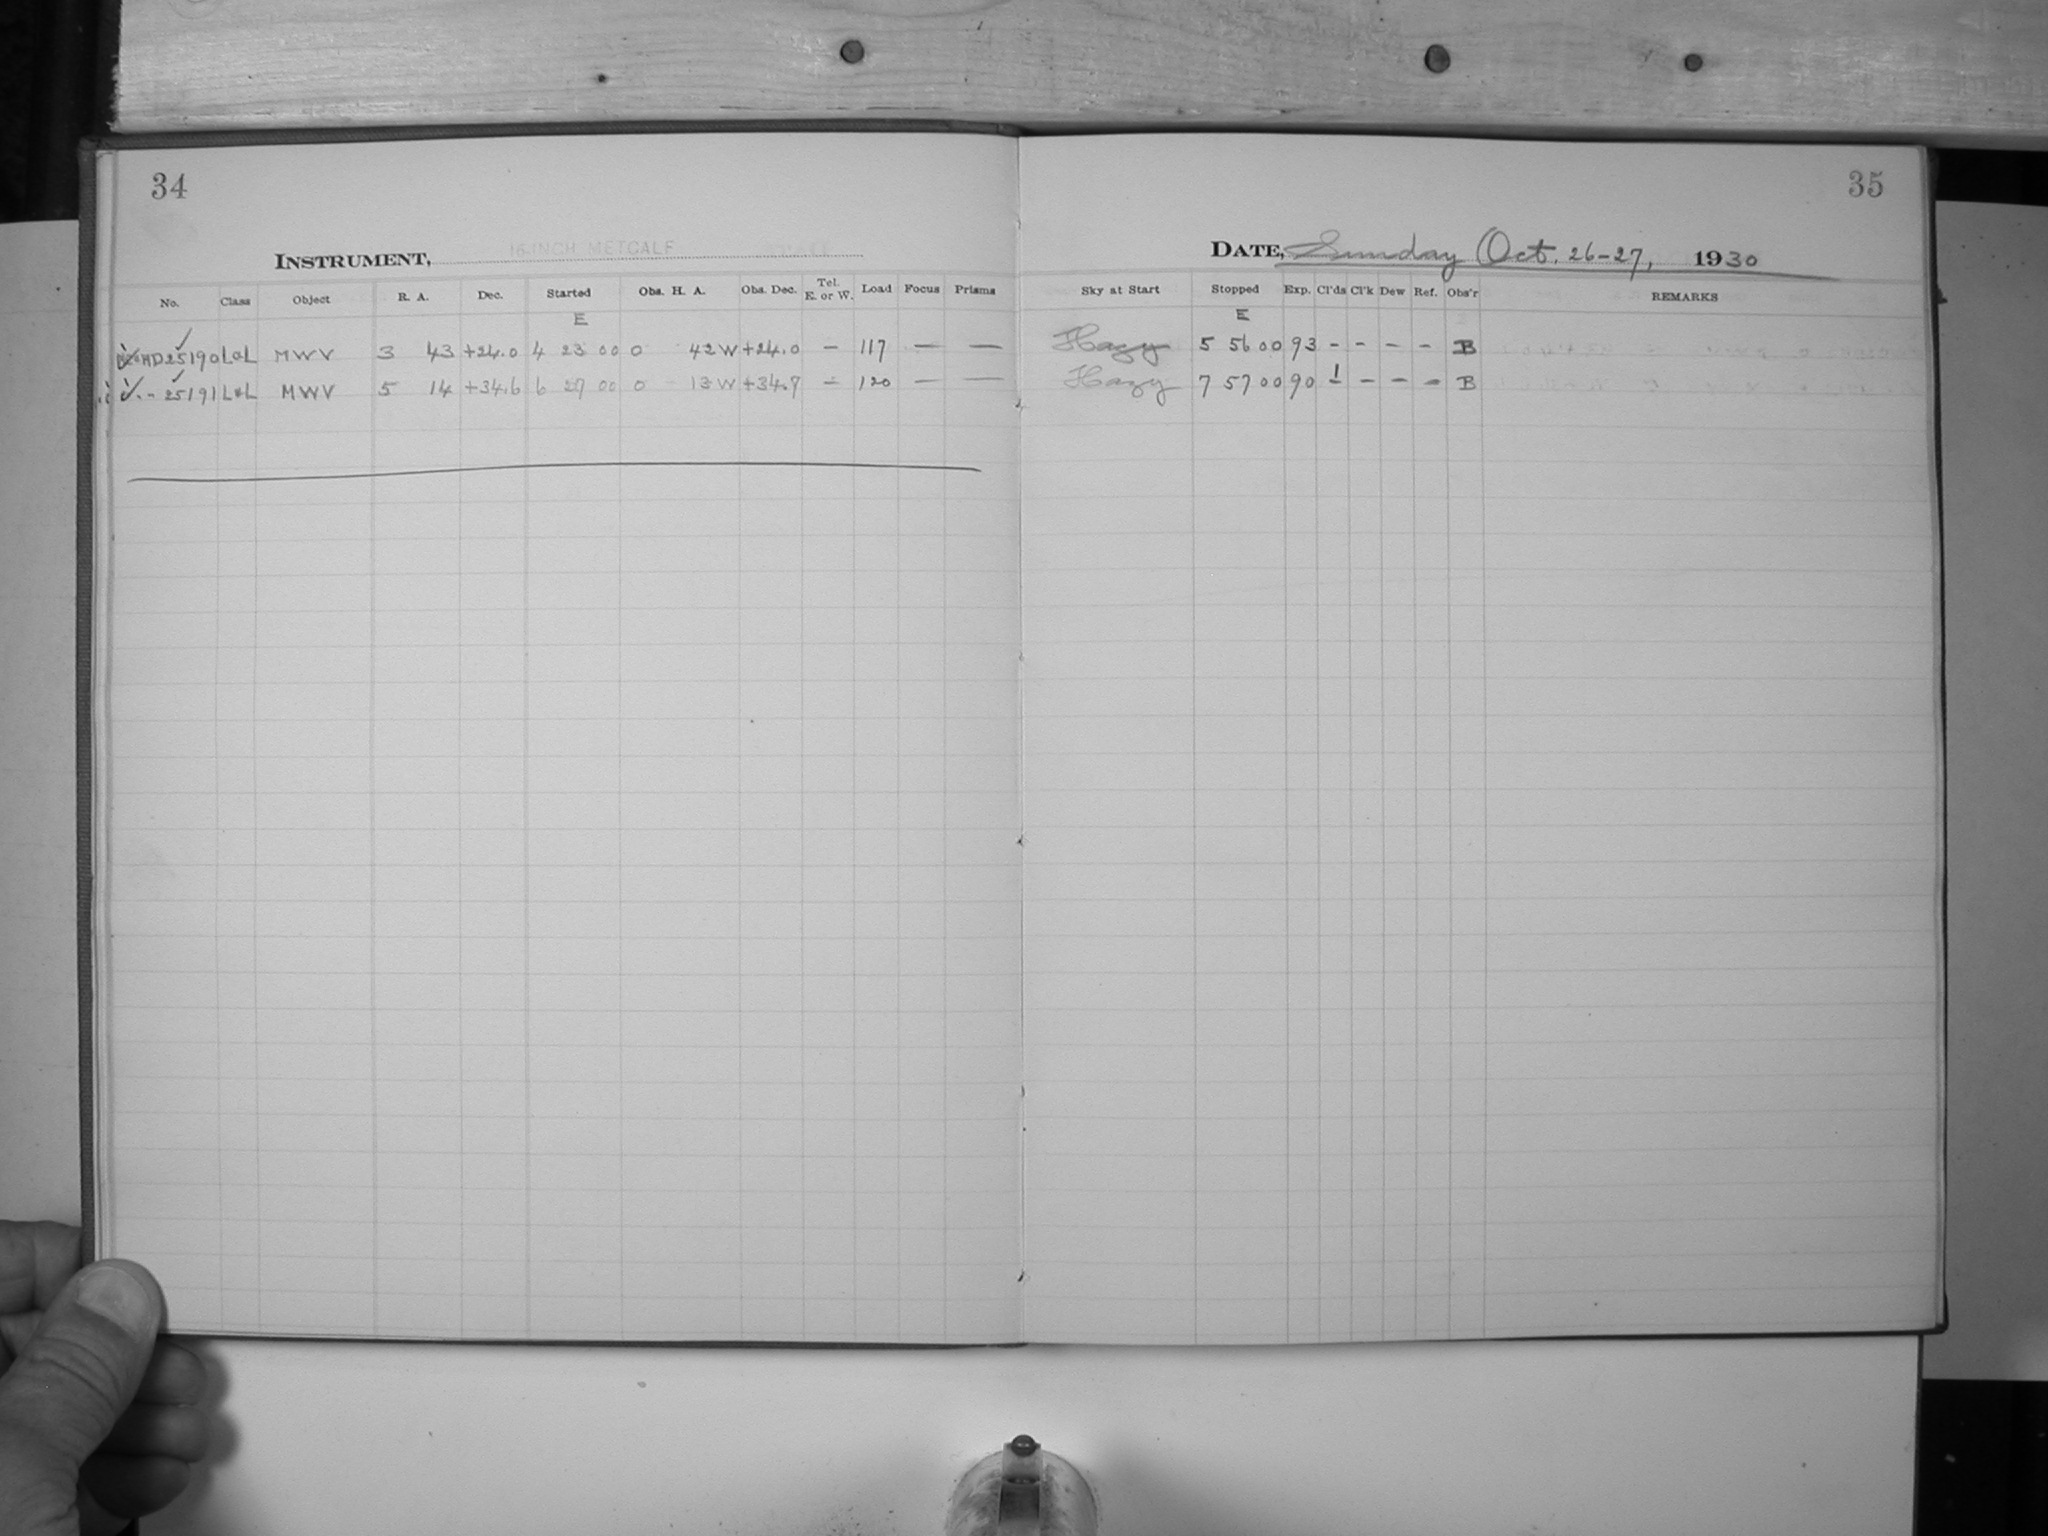 34
INSTRUMENT, 16-INCH METCALF
No. Class Object R. A. Dec. Started Obs. H. A. Obs. Dec. Tel. E. or W. Load Focus Prisms
E
25190 L&L MWV 3 43 +24.0 4 23 00 0 42 W +24.0 — 117 — —
25191 L&L MWV 5 14 +34.6 6 27 00 0 13 W +34.7 — 120 — —
35
DATE, Sunday Oct. 26-27, 1930
Sky at Start Stopped Exp. Cl'ds Cl'k Dew Ref. Obs'r REMARKS
E
Hazy 5 56 00 93 - - - - B
Hazy 7 57 00 90 1 - - - B